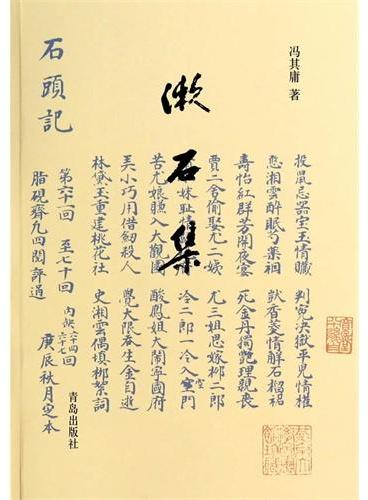 冯其庸 著
漱石集
石頭記
投鼠忌器宝玉情贓 判冤决獄平兒情權
憨湘雲醉眠芍藥裀 獃香菱情解石榴裙
壽怡紅群芳開夜宴 死金丹獨艷理親喪
賈二舍偷娶尤二姨 尤三姐思嫁柳二郎
妹耻情 冷二郎一冷入空門
苦尤娘賺入大觀園 酸鳳姐大鬧寧國府
弄小巧用借劍殺人 覺大限吞生金自逝
林黛玉重建桃花社 史湘雲偶填柳絮詞
第六十一回 至七十回
内缺六十四
六十七回
脂硯齋凡四閱評過
庚辰秋月定本
青岛出版社